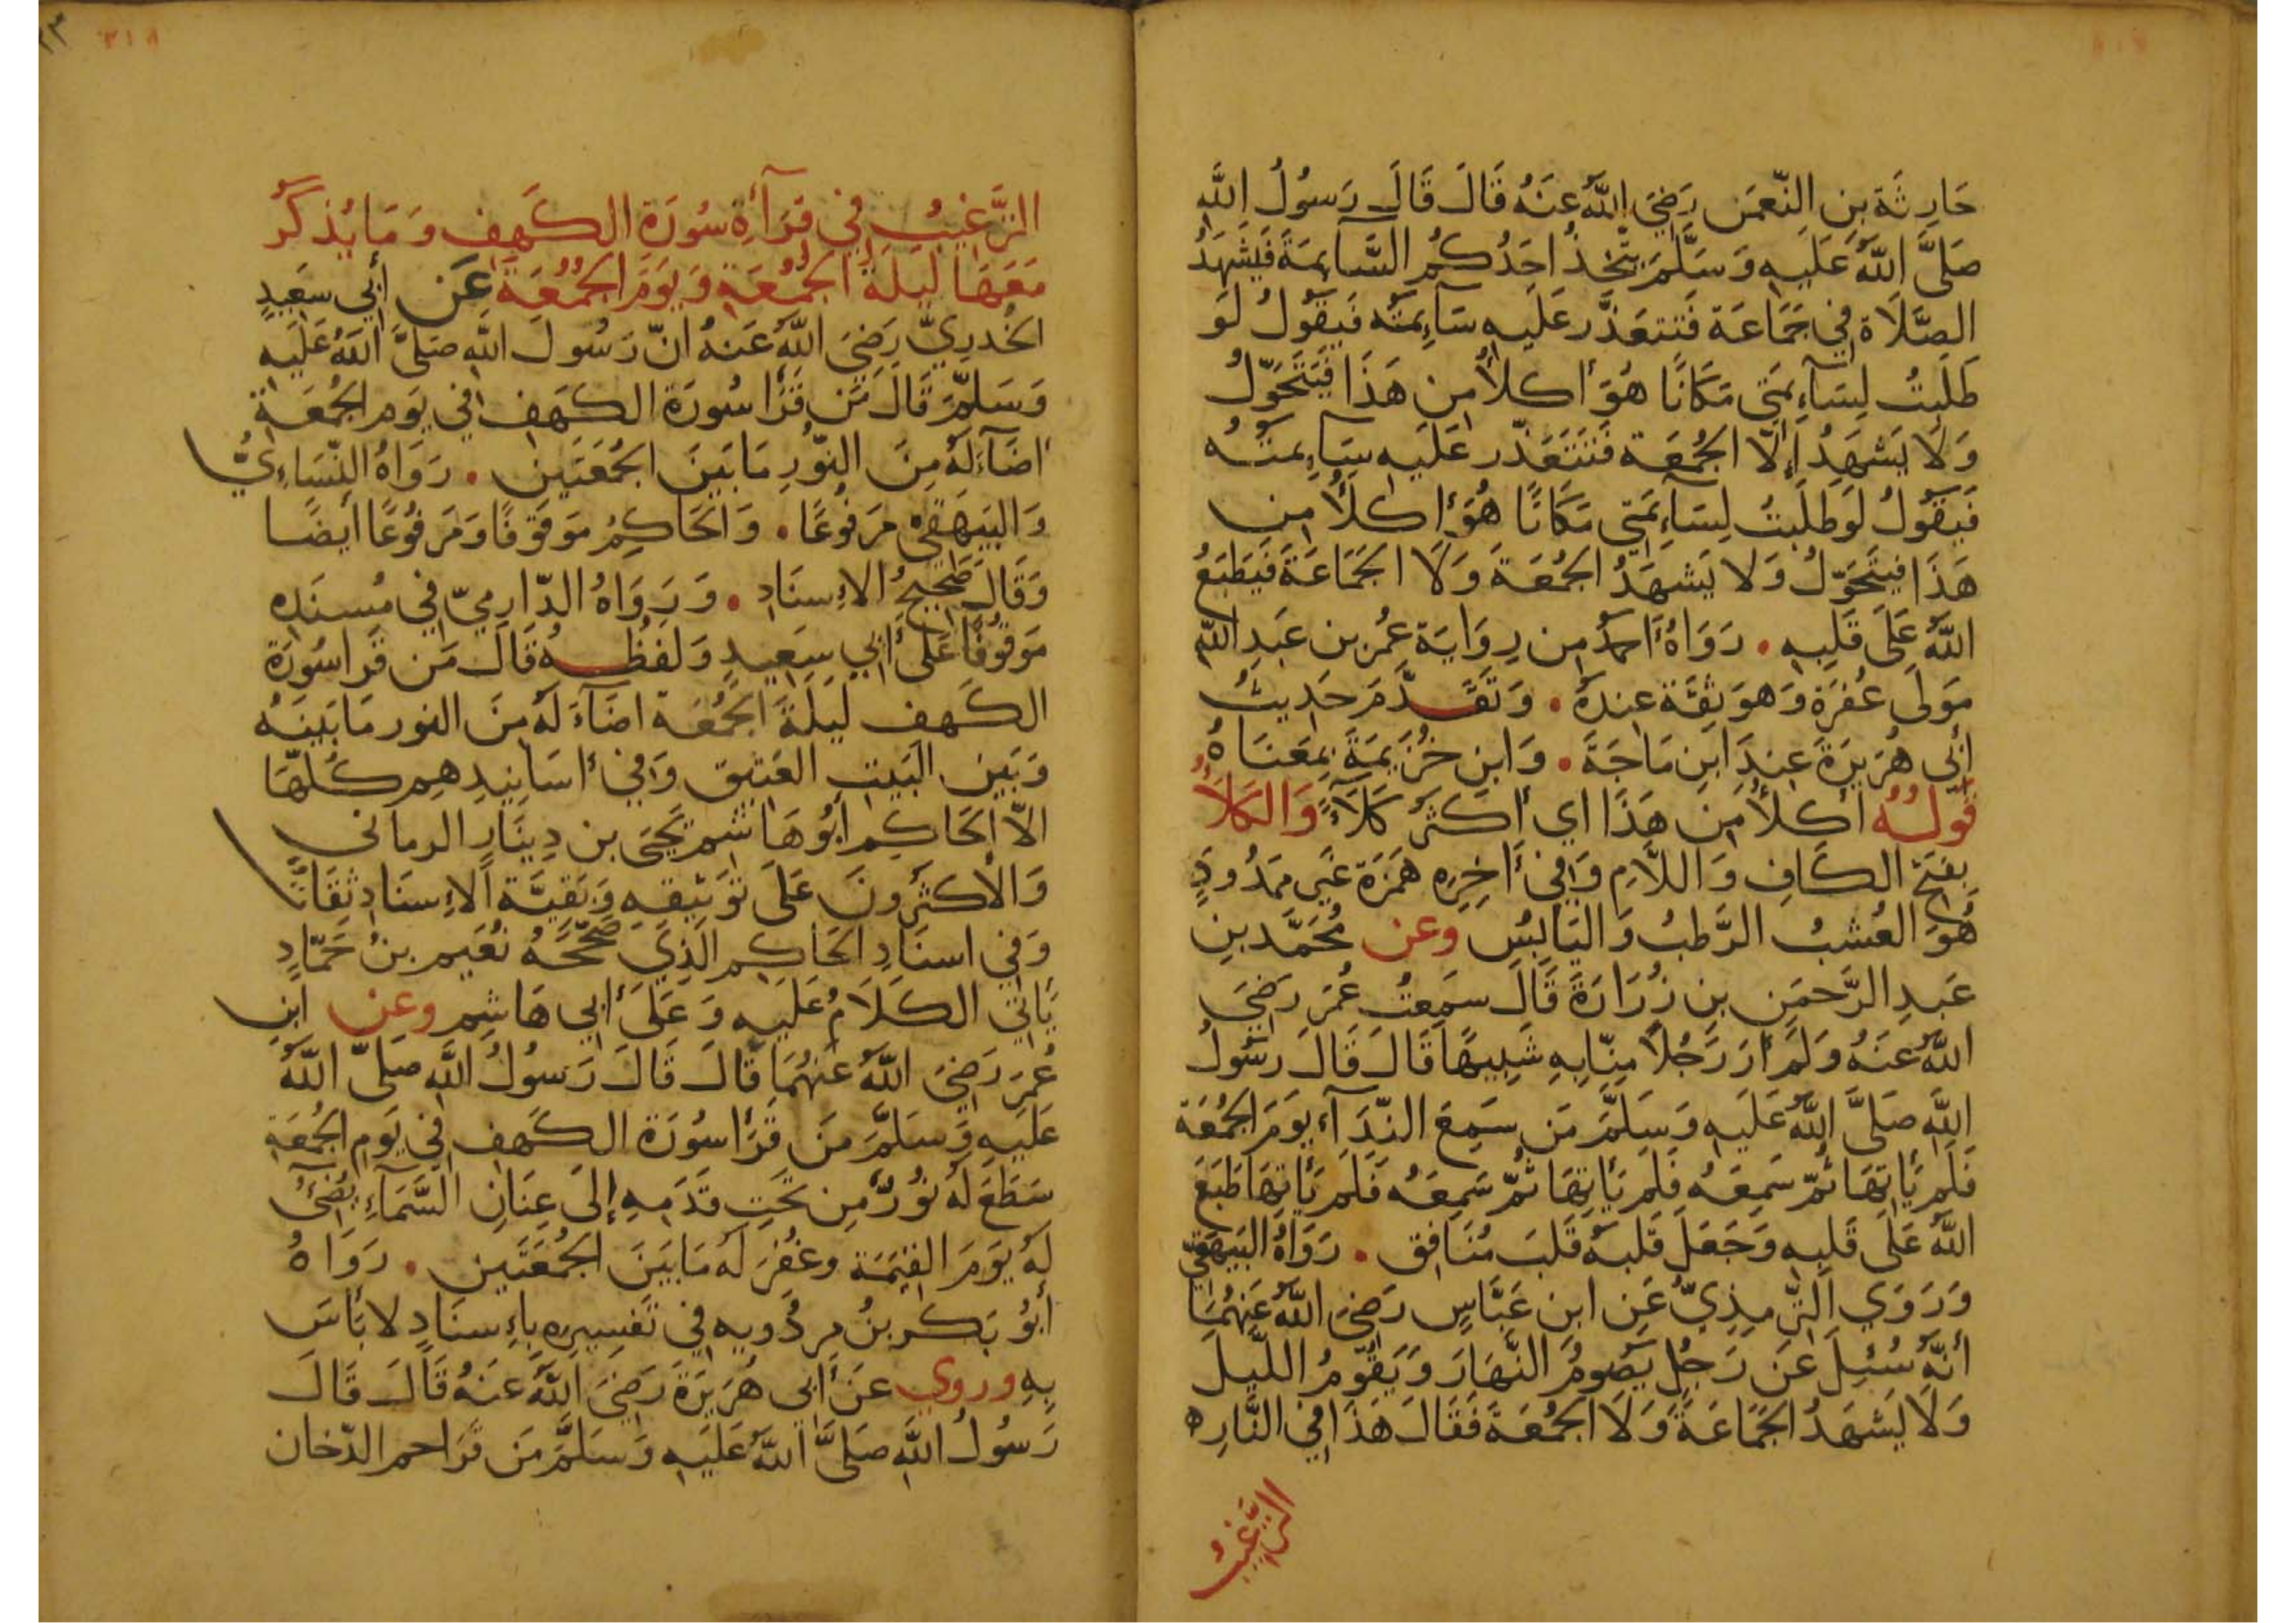 حَارِثَة بنِ النّعمَن رَضِيَ اللّٰهُ عَنهُ قَالَ قَالَ رَسُولُ اللّٰهِ
صَلَّى اللّٰهُ عَلَيهِ وَسَلَّمَ يتّخِذُ اَحَدُكُمُ السَّآئِمَةَ فَيَشْهَدُ
الصَّلَاةَ فِي جَمَاعَة فَتَتعَذَّر عَلَيهِ سَآئِمتُه فَيَقُولُ لَو
طَلَبتُ لِسَآئِمَتِي مَكَانًا هُوَ أكلأُ مِن هَذَا فَيَتَحَوّلُ
وَلَا يَشهَدُ إِلّا الجُمُعَة فَتَتَعَذّر عَلَيهِ سَآئِمتُه
فَيَقُولُ لَو طَلَبتُ لِسَآئِمَتِي مَكَانًا هُوَ أكلأُ مِن
هَذَا فيتَحَوّلُ وَلا يَشهَدُ الجُمُعَةَ وَلَا الجَمَاعَةَ فَيَطبَعُ
اللّٰهُ عَلَى قَلبِهِ . رَوَاهُ أحمدُ مِن رِوَايَة عُمَر بن عَبدِ اللّٰهِ
مَولَى غُفرَة وَهوَ ثِقَة عِندَهُ . وَتَقَدَّمَ حَدِيثُ
أبِى هُرَيرَةَ عِندَ ابنِ مَاجَةَ . وَابنِ خُزَيمَةَ بِمَعنَاهُ
قَولُهُ أكلأُ مِن هَذَا اي أكثَرُ كَلَأً وَالكَلَأُ
بفَتحِ الكَافِ وَاللَّامِ وَفِي أخِرِهِ هَمزَة غَير مَمدُودَةٍ
هُوَ العُشبُ الرَّطبُ وَاليَابِسُ وعن مُحَمَّد بنِ
عَبدِ الرَّحمَنِ بنِ زُرَارَةَ قَالَ سَمِعتُ عُمَرَ رَضِيَ
اللّٰهُ عَنهُ وَلَم أرَ رَجُلاً مِنّا بِهِ شَبِيهًا قَالَ قَالَ رسُولُ
اللّٰهِ صَلَّى اللّٰهُ عَلَيهِ وَسَلَّمَ مَن سَمِعَ النِّدَآءَ يَومَ الجُمُعَة
فَلَم يَأتِهَا ثُمّ سَمِعَهُ فَلَم يَأتِهَا ثُمّ سَمِعَهُ فَلَم يَأتِهَا طَبَعَ
اللّٰهُ عَلَى قَلبِهِ وَجَعَلَ قَلبَهُ قَلبَ مُنَافِق . رَوَاهُ البَيهَقِيّ
وَرَوَي التِّرمِذِيُّ عَنِ ابنِ عَبَّاسٍ رَضيَ اللّٰهُ عَنهُمَا
أنَّهُ سُئِلَ عَن رَجُلٍ يَصُومُ النَّهَارَ وَيَقُومُ اللَّيلَ
وَلَا يَشهَدُ الجَمَاعَةَ وَلَا الجُمُعَةَ فَقَالَ هَذَا فِي النَّارِ ه
الترَّغِيبُ
٢١٨
الترَّغِيبُ فِي قرَآءَةِ سُورَةِ الكَهفِ وَمَا يُذكَرُ
مَعَهَا لَيلَةَ الجُمُعَةِ وَيَومَ الجُمُعَةَ عَن أبي سَعِيدٍ
الخُدرِيّ رَضِيَ اللّٰهُ عَنهُ انّ رَسُولَ اللّٰهِ صَلَّى اللّٰهُ عَلَيهِ
وَسَلَّمَ قَالَ مَن قَرَأ سُورَة الكَهَفِ في يَومِ الجُمُعَةِ
اضَآءَ لَهُ مِنَ النّورِ مَا بَينَ الجُمُعَتَينِ . رَوَاهُ النّسَاءِيُّ
وَالبَيهَقِيّ مَرفُوعًا . وَالحَاكِمُ مَوقُوفًا وَمَرفُوعًا أيضًا
وَقَالَ صَحِيحُ الإسنَادِ . وَرَوَاهُ الدّارِميّ فِي مُسنَدِهِ
مَوقُوفًا عَلَى أبِي سَعِيدٍ وَلَفظُهُ قَالَ مَن قَرَأ سُورَةَ
الكَهفِ لَيلَةَ الجُمُعَة اضَآءَ لَهُ مِنَ النورِ مَا بَينَهُ
وَبَينَ البَيتِ العَتِيقِ وَفِي أسَانِيدِهِم كُلّهَا
الاّ الحَاكِم أبُو هَاشِم يَحيَى بن دِينَارِ الرماني
وَالأكثَرُونَ عَلَى تَوثِيقِهِ وَبَقِيَّة الإسنَادِ ثِقَاتٌ
وَفِي اسنَادِ الحَاكِمِ الَّذِي صَحّحَهُ نُعَيمِ بنُ حَمّادٍ
يَاتِي الكَلَامُ عَلَيهِ وَعَلَى أبي هَاشِمٍ وعنِ ابنِ
عُمَرَ رَضِيَ اللّٰهُ عَنهُمَا قَالَ قَالَ رَسُولُ اللّٰهِ صَلَّى اللّٰهُ
عَلَيهِ وَسَلَّمَ مَن قَرَأ سُورَةَ الكَهفِ فِي يَومِ الجُمُعَةِ
سَطَعَ لَهُ نُورٌ مِن تَحتِ قَدَمِهِ إلَى عِنَانِ السَّمَآءِ يُضِئُ
لَهُ يَومَ القِيَمَة وغُفِرَ لَهُ مَا بَينَ الجُمُعَتَينِ . رَوَاهُ
أبُو بَكرِ بنُ مِردُويه في تَفسِيرِهِ بِاءِسنَادٍ لا بَأسَ
بِهِ وروي عَن أبي هُرَيرَةَ رَضِيَ اللّٰهُ عَنهُ قَالَ قَالَ
رَسُولُ اللّٰهِ صَلَّى اللّٰهُ عَلَيهِ وَسَلَّمَ مَن قَرَأ حم الدّخان